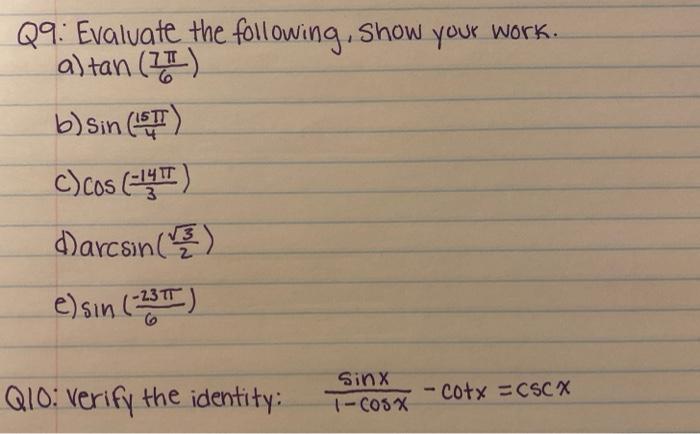 Q9: Evaluate the following, Show your work.
a) tan (7π/6)
b) sin (15π/4)
c) cos (-14π/3)
d) arcsin (√3/2)
e) sin (-23π/6)
Q10: Verify the identity: sinx/1-cosx - cotx = cscx